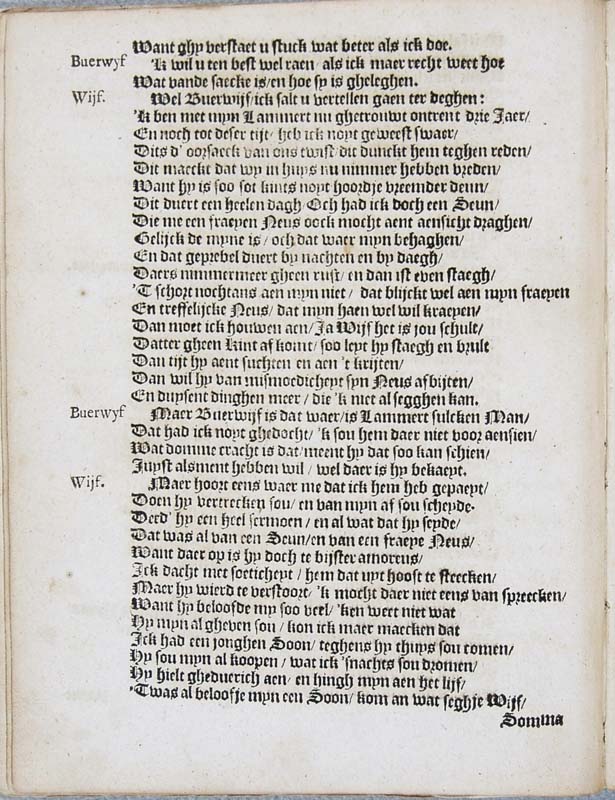 Want ghy verstaet u stuck wat beter als ick doe.
Buerwyf 'K wil u ten best wel raen / als ick maer recht weet hoe
Wat vande saecke is / en hoe sy is gheleghen.
Wijf. Wel Buerwijf / ick salt u vertellen gaen ter deghen:
'K ben met myn Lammert nu ghetrouwt ontrent drie Jaer /
En noch tot deser tijt / heb ick noyt geweest swaer /
Dits d' oorsaeck van ons twist / dit dunckt hem teghen reden /
Dit maeckt dat wy in huys nu nimmer hebben vreden /
Want hy is soo sot kints noyt hoordje vreemder deun /
Dit duert een heelen dagh / Och had ick doch een Seun /
Die me een fraeyen Neus oock mocht aent aensicht draghen /
Gelijck de myne is / och dat waer myn behaghen /
En dat geprebel duert by nachten en by daegh /
Daers nimmermeer gheen rust / en dan ist even staegh /
'T schort nochtans aen myn niet / dat blijckt wel aen myn fraeyen
En treffelijcke Neus / dat myn haen wel wil kraeyen /
Dan moet ick houwen aen / Ja Wijf het is jou schult /
Datter gheen kint af komt / soo leyt hy staegh en brult
Dan tijt hy aent suchten en aen 't krijten /
Dan wil hy van mismoedicheyt syn Neus afbijten /
En duysent dinghen meer / die 'k niet al segghen kan.
Buerwyf Maer Buerwijf is dat waer / is Lammert sulcken Man /
Dat had ick noyt ghedocht / 'k sou hem daer niet voor aensien /
Wat domme cracht is dat / meent hy dat soo kan schien /
Juyst alsment hebben wil / wel daer is hy bekaeyt.
Wijf. Maer hoort eens waer me dat ick hem heb gepaeyt /
Doen hy vertrecken sou / en van myn af sou scheyde.
Deed' hy een heel sermoen / en al wat dat hy seyde /
Dat was al van een Seun / en van een fraeye Neus /
Want daer op is hy doch te bijster amoreus /
Ick dacht met soeticheyt / hem dat uyt hooft te steecken /
Maer hy wierd te verstoort / 'k mocht daer niet eens van spreecken /
Want hy beloofde my soo veel / 'ken weet niet wat
Hy myn al gheven sou / kon ick maer maecken dat
Ick had een jonghen Soon / teghens hy thuys sou comen /
Hy sou myn al koopen / wat ick 'snachts sou dromen /
Hy hielt gheduerich aen / en hingh myn aen het lijf /
'Twas al beloofje myn een Soon / kom an wat seghje Wijf /
Somma